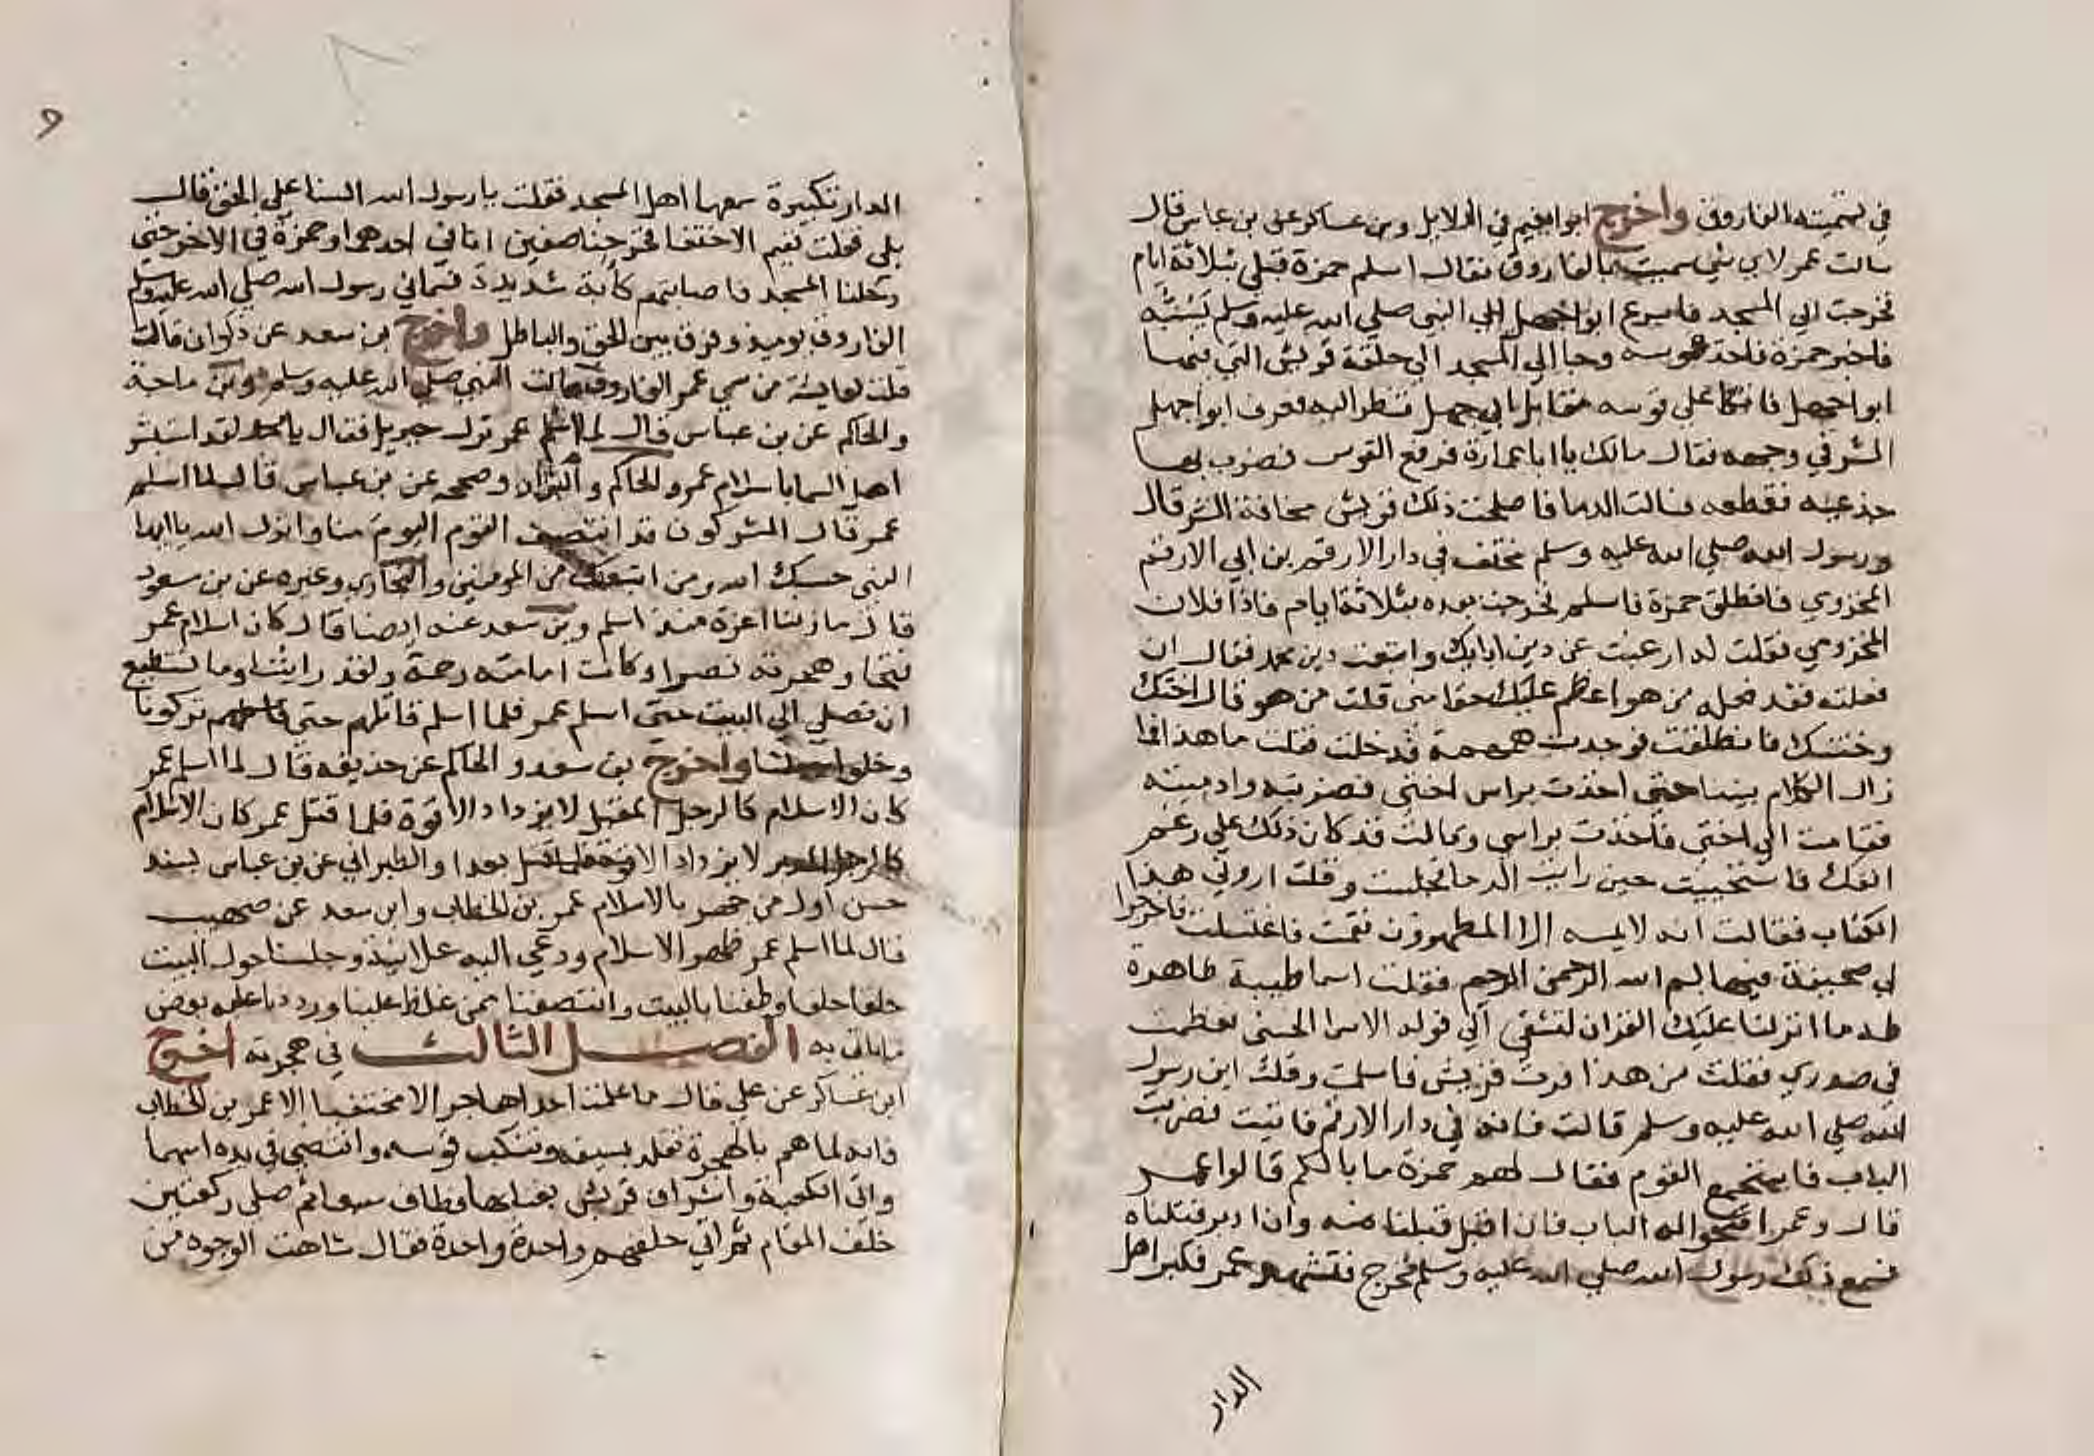 في تسميته الفاروق واخرج ابوا نعيم في الدلايل وبن عساكر عن بن عباس قال
سالت عمر لاي شي سميت بالفاروق فقال اسلم حمزة قبلي بثلاثة ايام
فخرجت الي المسجد فاسرع ابوا جهل الي النبي صلي الله عليه وسلم يَسُبُّه
فاخبر حمزة فاخذ قوسه وجا الي المسجد الي حلقة قريش التي فيها
ابوا جهل فاتكا علي قوسه مقابل ابي جهل فنظر اليه فعرف ابوا جهل
الشر في وجهه فقال مالك يا ابا عمارة فرفع القوس فضرب بها
فقطعه فسالت الدما فاصلحت ذلك قريش مخافة الشر قال
ورسول الله صلي الله عليه وسلم مختف في دار الارقم بن ابي الارقم
المخزومي فانطلق حمزة فاسلم فخرجت بعده بثلاثة ايام فاذا فلان
المخزومي فقلت له ارغبت عن دين ابايك واتبعت دين محمد فقال ان
فعلت فقد فعله من هو اعظم عليك حقا مني قلت من هو قال اختك
وختنك فانطلقت فوجدت همهمة فدخلت فقلت ما هذا فما
زال الكلام بيننا حتي اخذت براس اختي فضربته وادميته
فقامت الي اختي فاخذت براسي وقالت قد كان ذلك علي رغم
انفك فاستحييت حين رايت الدما فجلست وقلت اروني هذا
الكتاب فقالت انه لا يمسه الا المطهرون فقمت فاغتسلت فاخرجوا
لي صحيفة فيها بسم الله الرحمن الرحيم فقلت اسما طيبة طاهرة
طه ما انزلنا عليك القران لتشقي الي قوله الاسما الحسني فعظمت
في صدري فقلت من هذا فرت قريش فاسلمت وقلت اين رسول
الله صلي الله عليه وسلم قالت فانه في دار الارقم فاتيت فضربت
الباب فاستجمع القوم فقال لهم حمزة ما بالكم قالوا عمر
قال وعمر افتحوا له الباب فان اقبل قبلنا منه وان ادبر قتلناه
فسمع ذلك رسول الله صلي الله عليه وسلم فخرج فتشهد عمر فكبر اهل
الدار
٩
الدار تكبيرة سمعها اهل المسجد فقلت يا رسول الله السنا علي الحق قال
بلي فقلت ففيم الاختفا فخرجنا صفين انا في احدهما وحمزة في الاخر حتي
دخلنا المسجد فاصابتهم كأبة شديدة فسماني رسول الله صلي الله عليه وسلم
الفاروق يوميذ وفرق بين الحق والباطل واخرج بن سعد عن ذكوان قالت
قلت لعايشة من سمي عمر الفاروق قالت النبي صلي الله عليه وسلم وبن ماجة
والحاكم عن بن عباس قال لما اسلم عمر نزل جبريل فقال يا محمد لقد استبشر
اهل السما باسلام عمر والحاكم والبزار وصححه عن بن عباس قال لما اسلم
عمر قال المشركون قد انتصف القوم اليوم منا وانزل الله يا ايها
النبي حسبك الله ومن اتبعك من المومنين والبخاري وغيره عن بن مسعود
قال ما زلنا اعزة منذ اسلم وبن سعد عنه ايضا قال كان اسلام عمر
فتحا وهجرته نصرا وكانت امامته رحمة ولقد رايتنا وما نستطيع
ان نصلي الي البيت حتي اسلم عمر فلما اسلم قاتلهم حتي تركونا
وخلوا واخرج بن سعد والحاكم عن حذيفه قال لما اسلم عمر
كان الاسلام كالرجل المقبل لا يزداد الا قوة فلما قتل عمر كان الاسلام
كالرجل المدبر لا يزداد الا بعدا والطبراني عن بن عباس بسند
حسن اول من جهر بالاسلام عمر بن الخطاب وابن سعد عن صهيب
قال لما اسلم عمر ظهر الاسلام ودعي اليه علانية وجلسنا حول البيت
حلقا حلقا وطفنا بالبيت وانتصفنا ممن غلظ علينا ورددنا عليه بعض
ماياتي به الفصل الثالث في هجرته اخرج
ابن عساكر عن علي قال ما علمت احدا هاجر الا مختفيا الا عمر بن الخطاب
فانه لما هم بالهجرة تقلد بسيفه وتنكب قوسه وانتضي في يده اسهما
واتي الكعبة واشراف قريش بفنايها وطاف سبعا ثم صلي ركعتين
خلف المقام ثم اتي حلقهم واحدة واحدة فقال شاهت الوجوه من